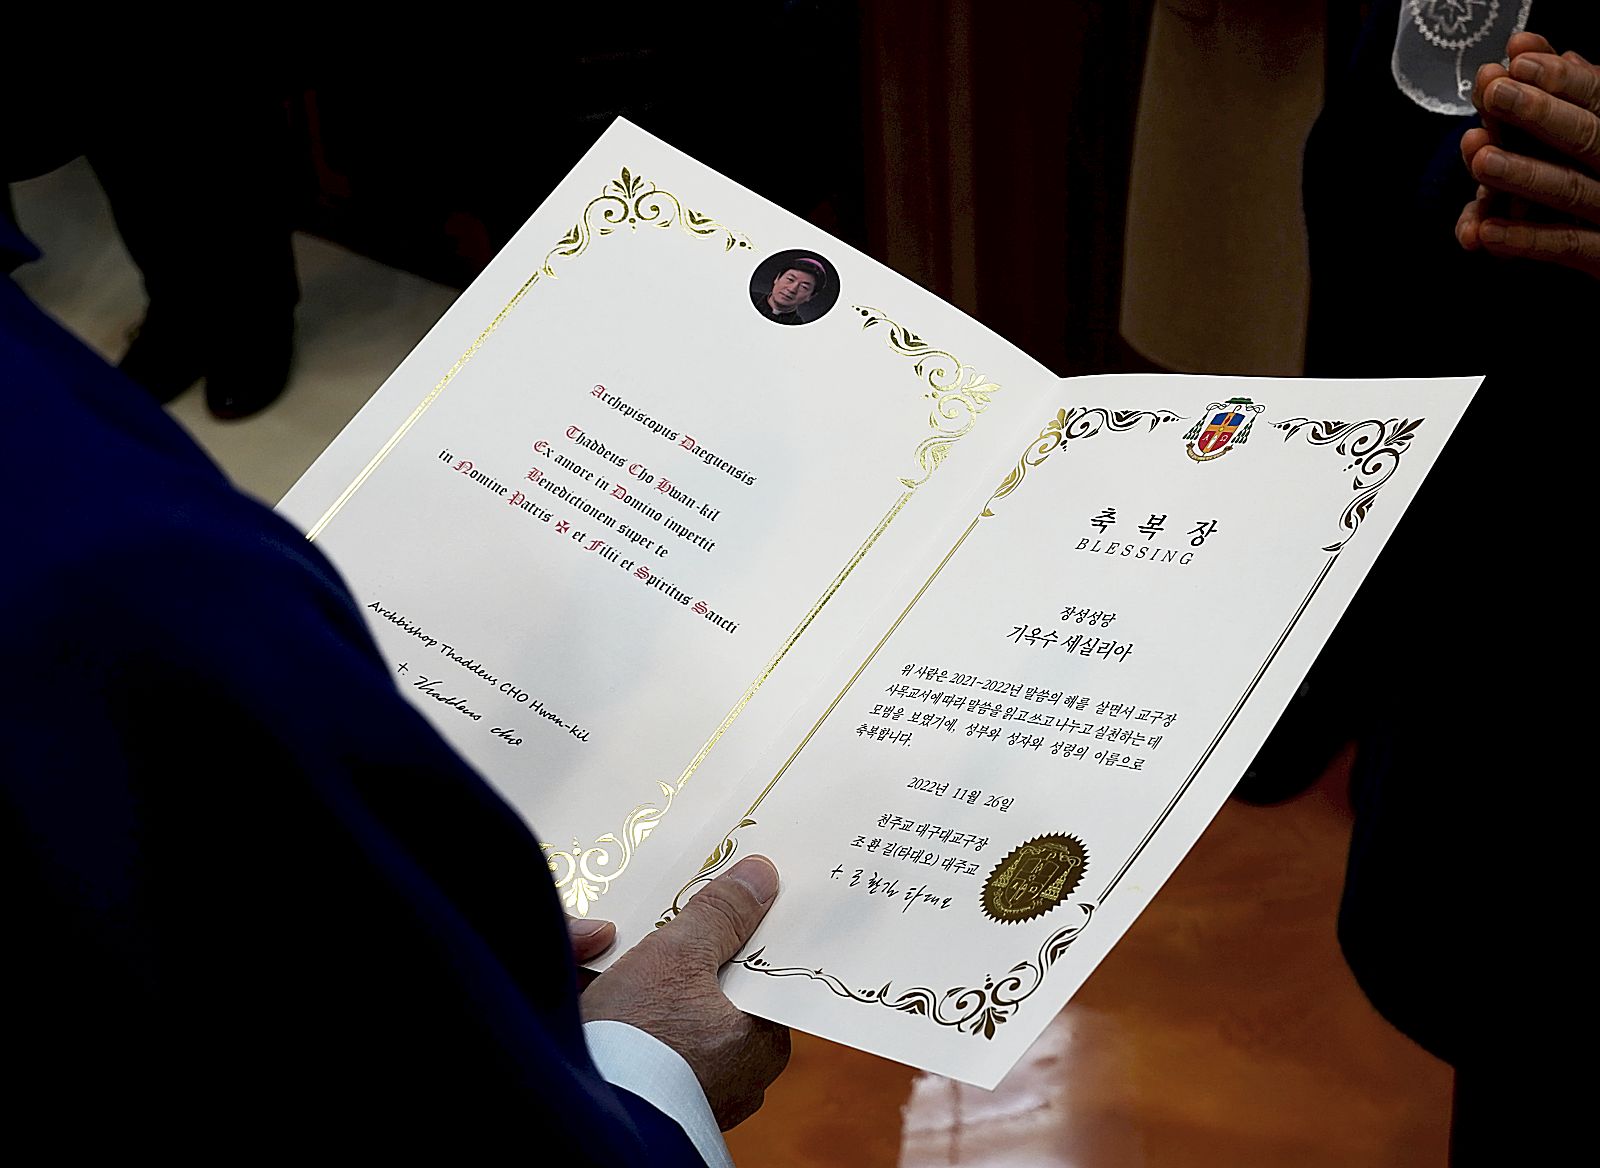 Archepiscopus Daeguensis
Thaddeus Cho Hwan-kil
Ex amore in Domino impertit
Benedictionem super te
in Nomine Patris ✠ et Filii et Spiritus Sancti
Archbishop Thaddeus CHO Hwan-kil
+. Thaddeus cho
축 복 장
BLESSING
장성성당
기옥수 세실리아
위 사람은 2021~2022년 말씀의 해를 살면서 교구장
사목교서에 따라 말씀을 읽고 쓰고 나누고 실천하는 데
모범을 보였기에, 성부와 성자와 성령의 이름으로
축복합니다.
2022년 11월 26일
천주교 대구대교구장
조 환 길(타대오) 대주교
+. 조 환길 타대오